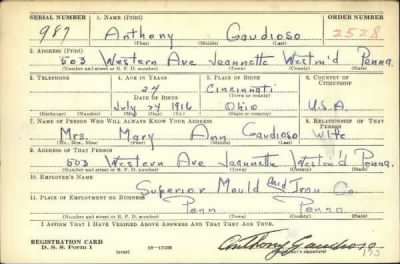 SERIAL NUMBER 1. NAME (Print) ORDER NUMBER
987 Anthony Gaudioso 2528
(First) (Middle) (Last)
2. ADDRESS (Print)
503 Western Ave Jeannette Westm'd Penna.
(Number and street or R. F. D. number) (Town) (County) (State)
3. TELEPHONE 4. AGE IN YEARS 5. PLACE OF BIRTH 6. COUNTRY OF CITIZENSHIP
24 Cincinnati
DATE OF BIRTH (Town or county)
July 27 1916 Ohio U.S.A.
(Exchange) (Number) (Mo.) (Day) (Yr.) (State or country)
7. NAME OF PERSON WHO WILL ALWAYS KNOW YOUR ADDRESS 8. RELATIONSHIP OF THAT PERSON
Mrs. Mary Ann Gaudioso Wife
(Mr., Mrs., Miss) (First) (Middle) (Last)
9. ADDRESS OF THAT PERSON
503 Western Ave Jeannette Westm'd Penna.
(Number and street or R. F. D. number) (Town) (County) (State)
10. EMPLOYER'S NAME
Superior Mould and Iron Co
11. PLACE OF EMPLOYMENT OR BUSINESS
Penn Penna
(Number and street or R. F. D. number) (Town) (County) (State)
I AFFIRM THAT I HAVE VERIFIED ABOVE ANSWERS AND THAT THEY ARE TRUE.
REGISTRATION CARD
D. S. S. Form 1 (over) 16—17105 Anthony Gaudioso